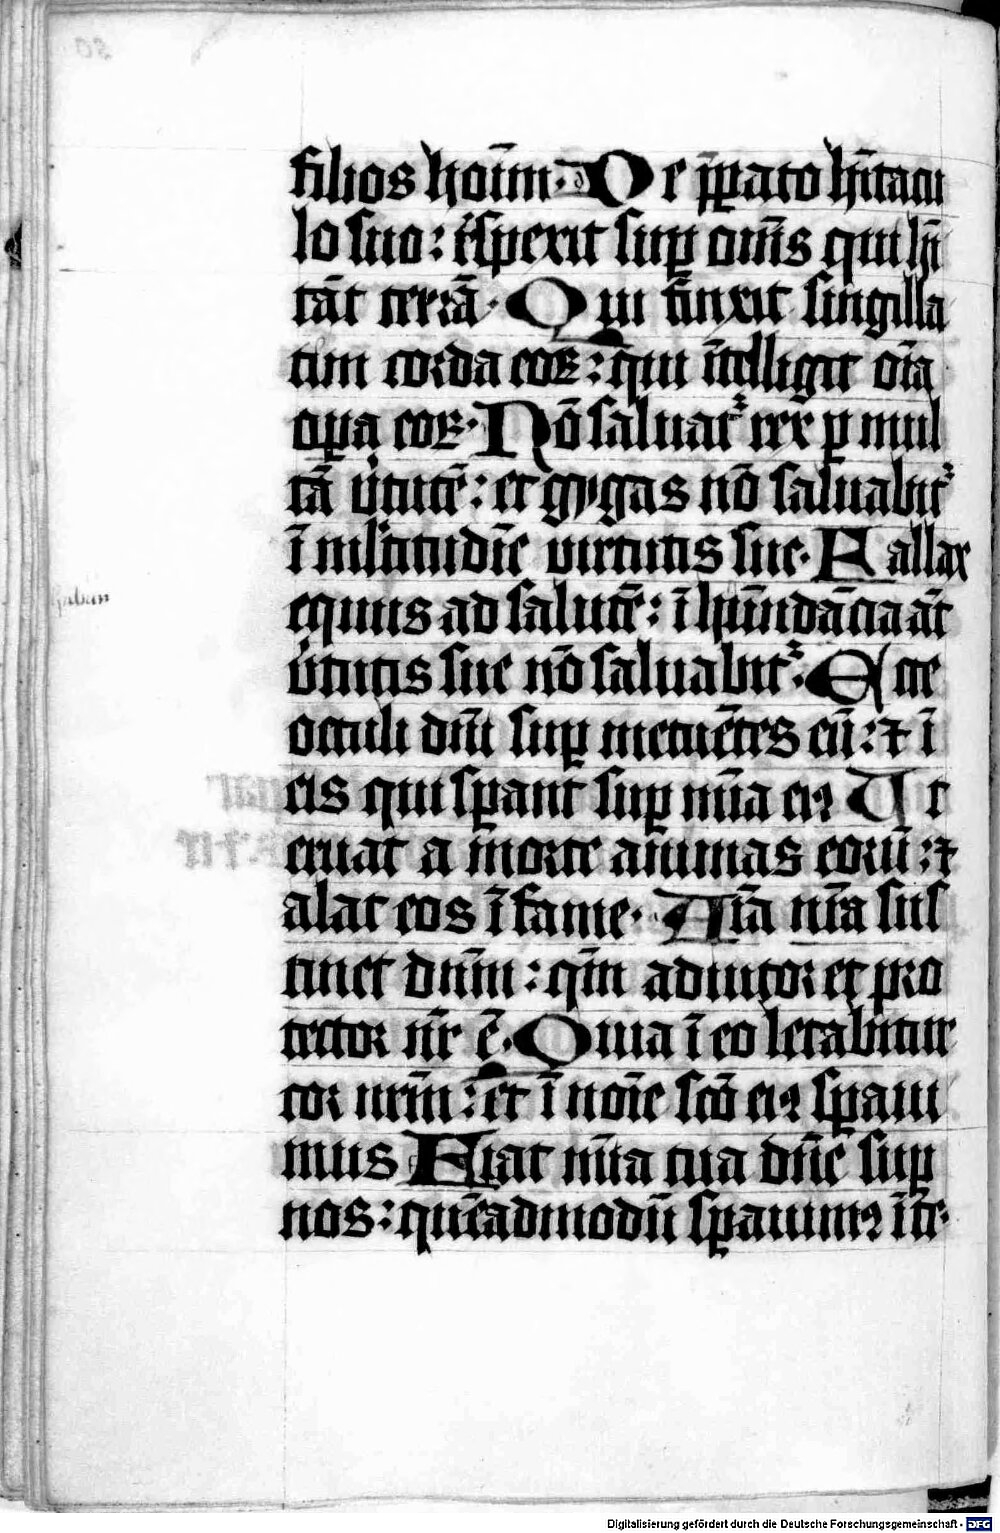 filios hoīm. De p̄parato hītacu
lo suo: r̄spexit suꝑ om̄s qui hī
tāt terrā. Qui finxit singilla
tim corda eoꝝ: qui ītelligit oīa
oꝑa eoꝝ. Nō saluat᷑ rex ꝑ mul
tā v̓tutē: et gygas nō saluabit᷑
ī ml̓titudīe virtutis sue. Fallax
equus ad salutē: ī hūndācia āt
v̓tutis sue nō saluabit᷑. Ecce
oculi dn̄i suꝑ metuētes eū: ⁊ ī
eis qui sꝑant suꝑ mīa eiꝰ Ut
eruat a morte animas eorū: ⁊
alat eos ī fame. Aīa nr̄a sus
tinet dn̄m: qm̄ adiutor et pro
tector nr̄ ē. Quia ī eo letabitur
cor nrm̄: et ī noīe scō eiꝰ sꝑaui
mus Fiat mīa tua dn̄e suꝑ
nos: quēadmodū sꝑauimꝰ ī te.
Digitalisierung gefördert durch die Deutsche Forschungsgemeinschaft - DFG